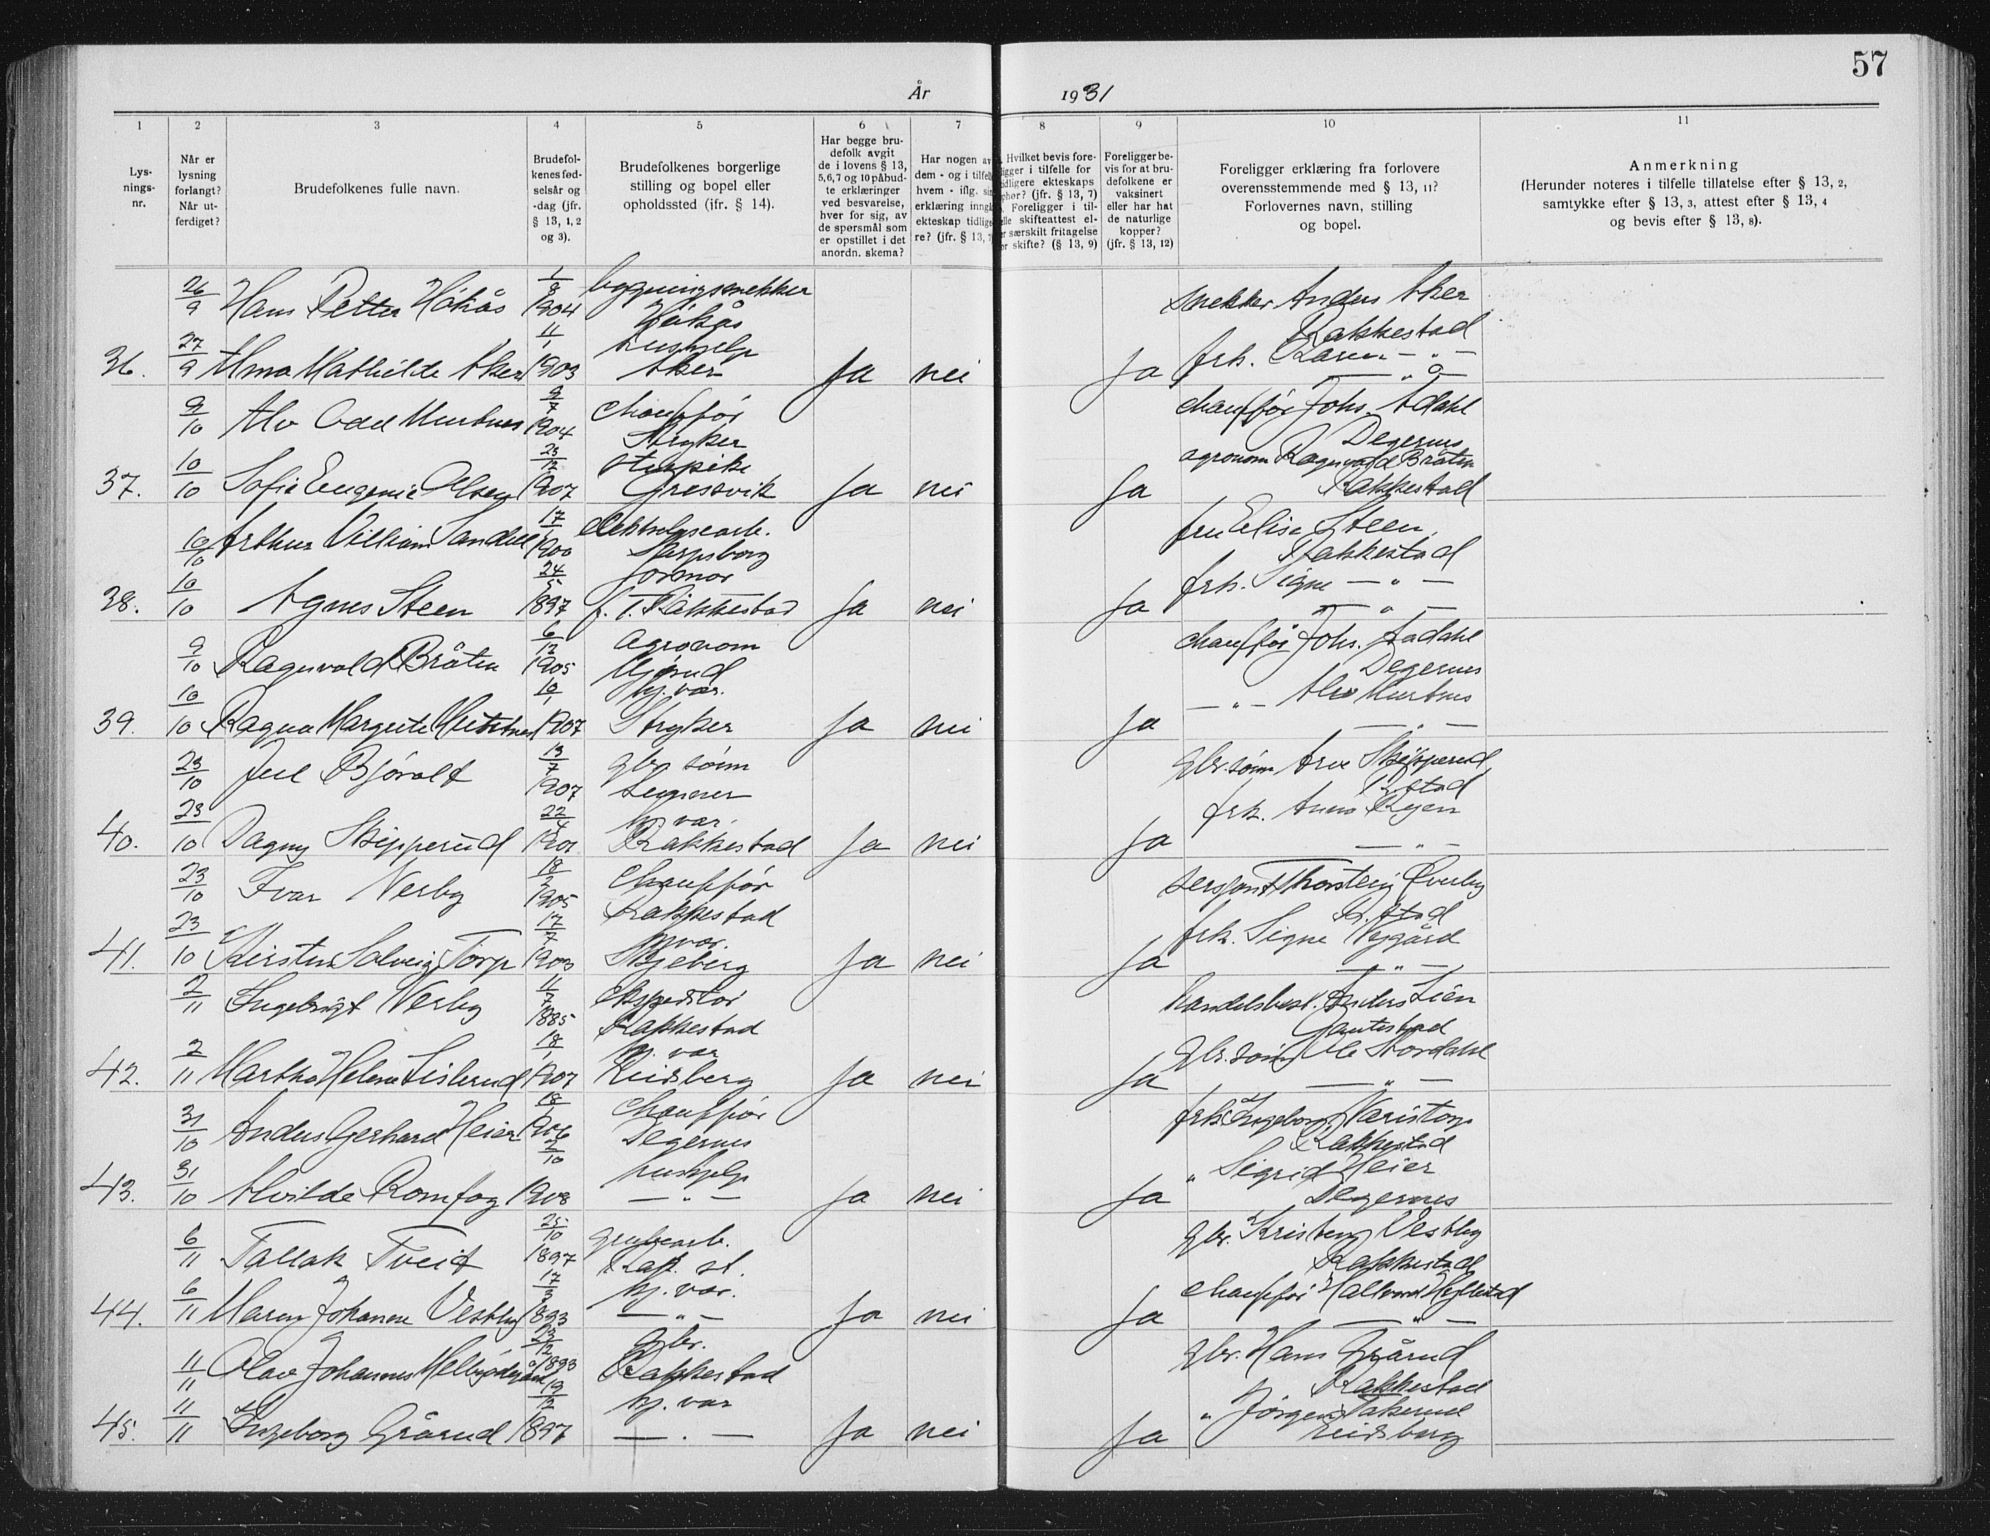 57
År 1931
1 2 3 4 5 6 7 8 9 10 11
Lysningsnr.
Når er lysning forlangt? Når utferdiget?
Brudefolkenes fulle navn.
Brudefolkenes fødselsår og -dag (jfr. § 13, 1, 2 og 3).
Brudefolkenes borgerlige stilling og bopel eller opholdssted (jfr. § 14).
Har begge brudefolk avgit de i lovens § 13, 5, 6, 7 og 10 påbudte erklæringer ved besvarelse, hver for sig, av de spørsmål som er opstillet i det anordn. skema?
Har nogen av dem - og i tilfelle hvem - iflg. sin erklæring inngått ekteskap tidligere? (jfr. § 13, 7
Hvilket bevis foreligger i tilfelle for tidligere ekteskaps opphør? (jfr. § 13, 7) Foreligger i tilfelle skifteattest eller særskilt fritagelse for skifte? (§ 13, 9)
Foreligger bevis for at brudefolkene er vaksinert eller har hat de naturlige kopper? (jfr. § 13, 12)
Foreligger erklæring fra forlovere overensstemmende med § 13, 11? Forlovernes navn, stilling og bopel.
Anmerkning (Herunder noteres i tilfelle tillatelse efter § 13, 2, samtykke efter § 13, 3, attest efter § 13, 4 og bevis efter § 13, 8).
26/9 Hans Petter Høkås 1/8 1904 bygningssnekker Høkås snekker Anders Aker Rakkestad
36. 27/9 Alma Mathilde Aker 11/1 1903 hushjelp Aker Ja nei Ja frk. Karen — " —
9/10 Alv Odd Murtnes 9/7 1904 chauffør Stryker chauffør Johs. Ådahl Degernes
37. 10/10 Sofie Eugenie Olsen 23/12 1907 Gressvik Ja nei Ja agronom Ragnvald Bråten Rakkestad
10/10 Arthur William Sandell 17/1 1900 Sarpsborg fru Elise Steen Rakkestad
38. 10/10 Agnes Steen 24/5 1897 jormor f. T. Rakkestad Ja nei Ja frk. Signe — " —
9/10 Ragnvald Bråten 6/12 1905 agronom Mjørud chauffør Johs. Aadahl Degernes
39. 10/10 Ragna Margrete Murtnes 10/1 1907 hj. vær. Stryker Ja nei Ja — " — Alv Murtnes — " —
23/10 Juel Bjørolt 13/7 1907 gbr. sønn gbr. sønn Arve Skipperud R.stad
40. 23/10 Dagny Skipperud 22/4 hj. vær. Rakkestad Ja nei Ja frk. Anna Ryen — " —
23/10 Ivar Nerby 18/2 1905 chauffør Rakkestad sersjant Thorstein Øverby R.stad
41. 23/10 Kirsten Solveig Torp 17/7 1903 hj. vær. Skjeberg Ja nei Ja frk. Signe Nygård — " —
2/11 Ingebrigt Nerby 11/7 1885 ekspeditør Rakkestad handelsbest. Anders Lien Gautestad
42. 2/11 Martha Helene Lislerud 18/1 1907 hj. vær Eidsberg Ja nei Ja gbr. sønn Ole Stordahl — " —
31/10 Anders Gerhard Heier 18/1 1906 chauffør Degernes frk. Ingeborg Naristorp Rakkestad
43. 31/10 Alvilde Romfog 2/10 1908 hushjelp — " — Ja nei Ja " Sigrid Heier Degernes
6/11 Tallak Tveit 25/10 1897 grubearb. Rak. st. gbr. Kristen Vestby Rakkestad
44. 6/11 Maren Johanne Vestby 17/3 1893 hj. vær. — " — Ja nei Ja chauffør Hallvard Hyllestad — " —
11/11 Olav Johannes 23/12 1893 gbr. Rakkestad gbr. Hans Grårud Rakkestad
45. 11/11 Ingeborg Grårud 19/12 1897 hj. vær — " — Ja nei Ja " Jørgen Takerud Eidsberg